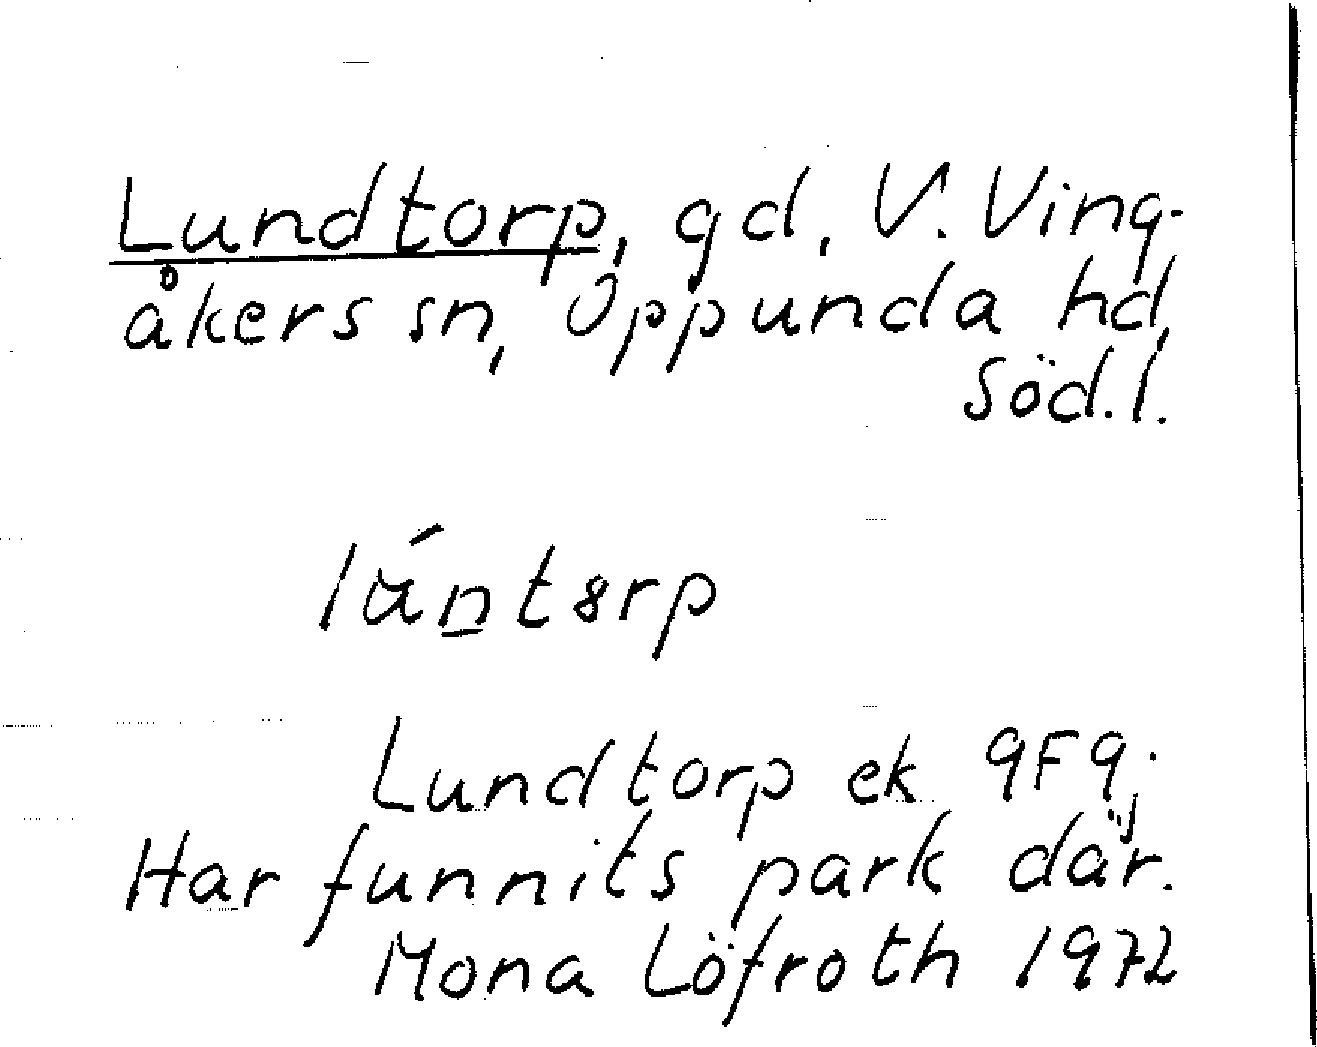 Lundtorp, gd, V. Ving-
åkers sn, Oppunda hd,
Söd.l.
lún̲t8rp
Lundtorp ek 9F9j
Har funnits park där.
Mona Löfroth 1972